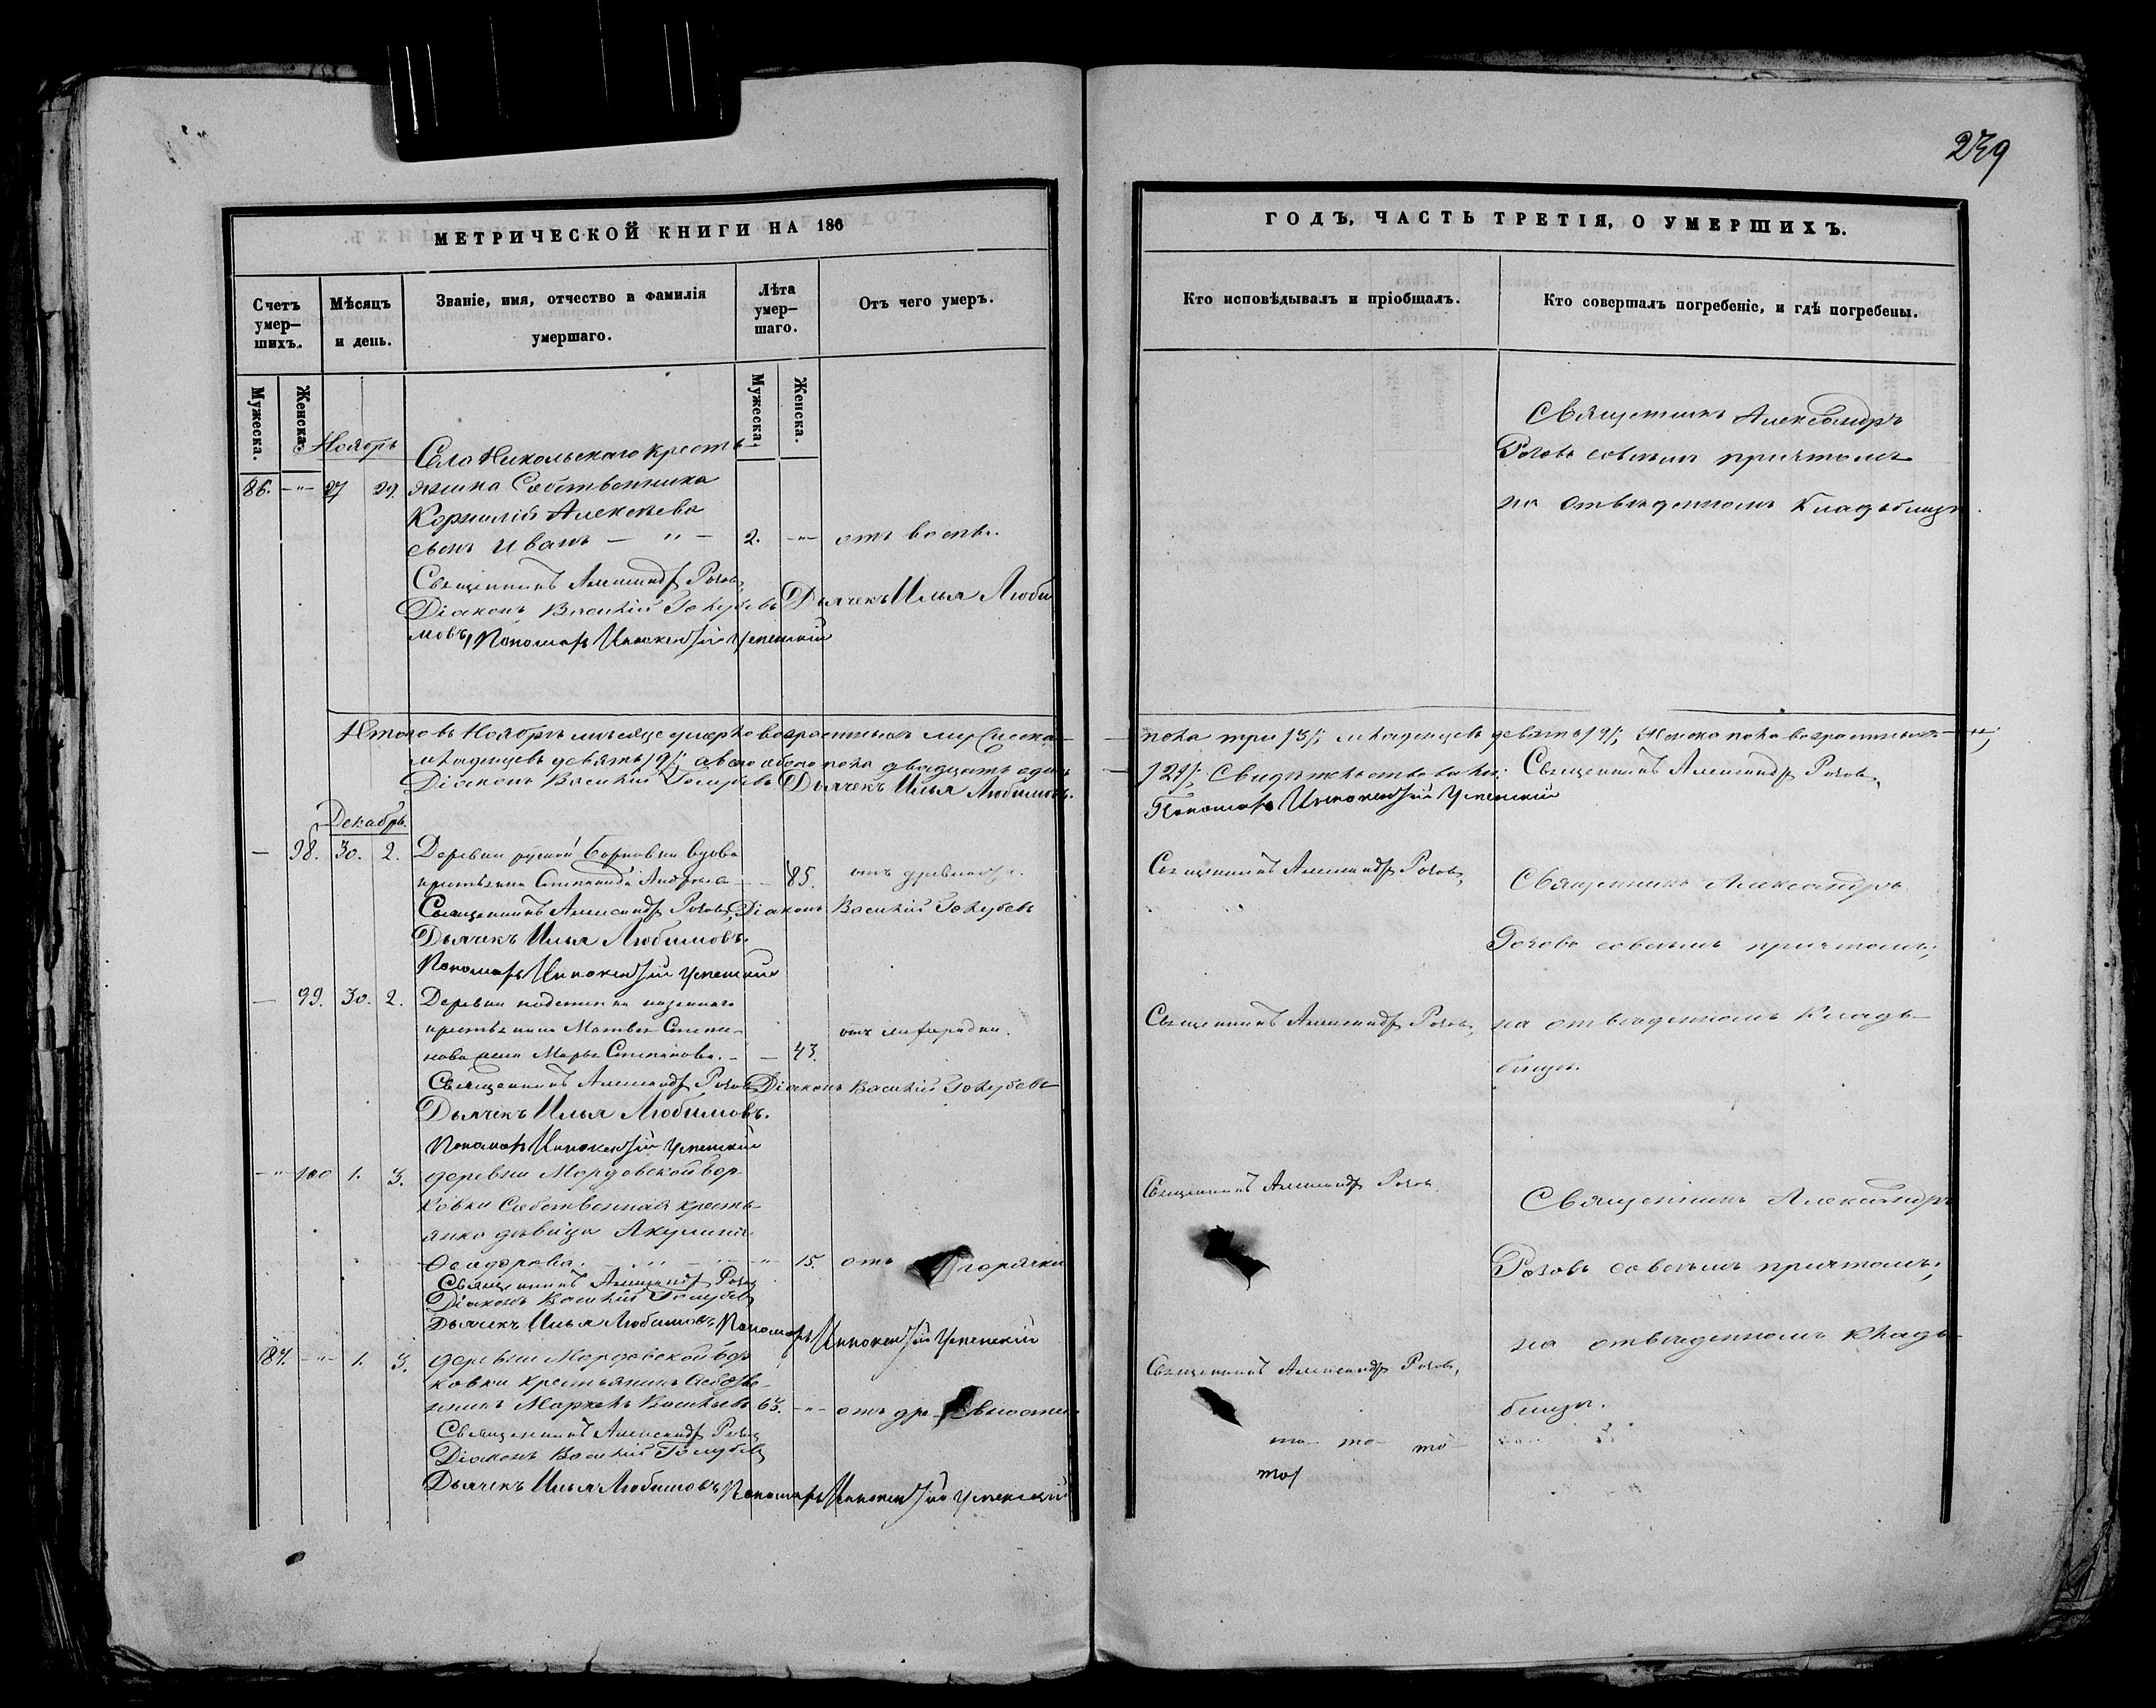 239
МЕТРИЧЕСКОЙ КНИГИ НА 186
Счетъ умер– шихъ.
Мѣсяцъ и день.
Званіе, имя, отчество и фамилія умершаго.
Лѣта умер– шаго.
Отъ чего умеръ.
Мужеска.
Женска.
Мужеска.
Женска.
Ноябрь
Села Никольскаго кресть
86. –"– 27 29. янина Собственника
Корнилій Алексѣева
сынъ Иванъ – " – 2. –"– отъ воспы.
Священникъ Александръ Розовъ
Діаконъ Василій Голубевъ Дьячекъ Илья Люби
мовъ, Пономарь Инокентій Успенскій
Итого въ Ноябрѣ мѣсяцѣ умерло возрастныхъ мужеска
младенцевъ девять /9/; а всего обоего пола двадцать одинъ
Діаконъ Василій Голубевъ Дьячекъ Илья Любимовъ.
Декабрь.
– 98. 30. 2. Деревни руской Борковки вдова
крестьянка Степанида Андреева – – 85. отъ древности.
Священникъ Александръ Розовъ, Діаконъ Василій Голубевъ
Дьячекъ Илья Любимовъ.
Пономарь Инокентій Успенскій
– 99. 30. 2. Деревни
крестьянина Матвея Степа–
нова жена Марья Степанова. – – 43. отъ лихорадки.
Священникъ Александръ Розовъ Діаконъ Василій Голубевъ
Дьячекъ Илья Любимовъ.
Пономарь Инокентій Успенскій
–"– 100 1. 3. деревни Мордовской Бор
ковки Собственная кресть–
янка дѣвица Акулина
Ѳеодорова. " – " – " 15. отъ горячки
Священникъ Александръ Розовъ
Діаконъ Василій Голубевъ
Дьячекъ Илья Любимовъ Пономарь Инокентій Успенскій
87. –"– 1. 3. деревни Мордовской Бор
ковки крестьянинъ Собстве–
нникъ Маркелъ Васильевъ 63. –"– отъ древности
Священникъ Александръ Розовъ
Діаконъ Василій Голубевъ
Дьячекъ Илья Любимовъ Пономарь Инокентій Успенскій
ГОДЪ, ЧАСТЬ ТРЕТІЯ, О УМЕРШИХЪ.
Кто исповѣдывалъ и пріобщалъ.
Кто совершалъ погребеніе, и гдѣ погребены.
Священникъ Александръ
Розовъ совсѣмъ причтомъ
на отведенномъ Кладьбищѣ.
– пола три /3/; младенцевъ девять /9/; Женска пола возрастныхъ – " ;
– /21/; Свидѣтельствовали: Священникъ Александръ Розовъ,
Пономарь Инокентій Успенскій
Священникъ Александръ Розовъ,
Священникъ Александръ
Розовъ совсѣмъ причтомъ;
Священникъ Александръ Розовъ,
на отведенномъ Кладь–
бищѣ.
Священникъ Александръ Розовъ
Священникъ Александръ
Розовъ совсѣмъ причтомъ;
на отведенномъ кладь–
Священникъ Александръ Розовъ,
бищѣ.
то– то– то–